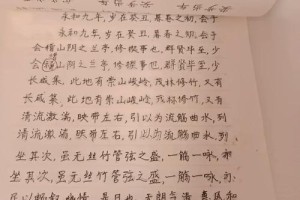 永和九年，岁在癸丑，暮春之初，会于
永和九年，岁在癸丑，暮春之初，会于
会稽山阴之兰亭，修禊事也。群贤毕至，少
会稽山阴之兰亭，修禊事也。群贤毕至，少
长咸集。此地有崇山峻岭，茂林修竹，又有
长咸集。此地有崇山峻岭，茂林修竹，又有
清流激湍，映带左右，引以为流觞曲水，列
清流激湍，映带左右，引以为流觞曲水，列
坐其次，虽无丝竹管弦之盛，一觞一咏，亦
坐其次，虽无丝竹管弦之盛，一觞一咏，亦
足以畅叙幽情。是日也，天朗气清，惠风和